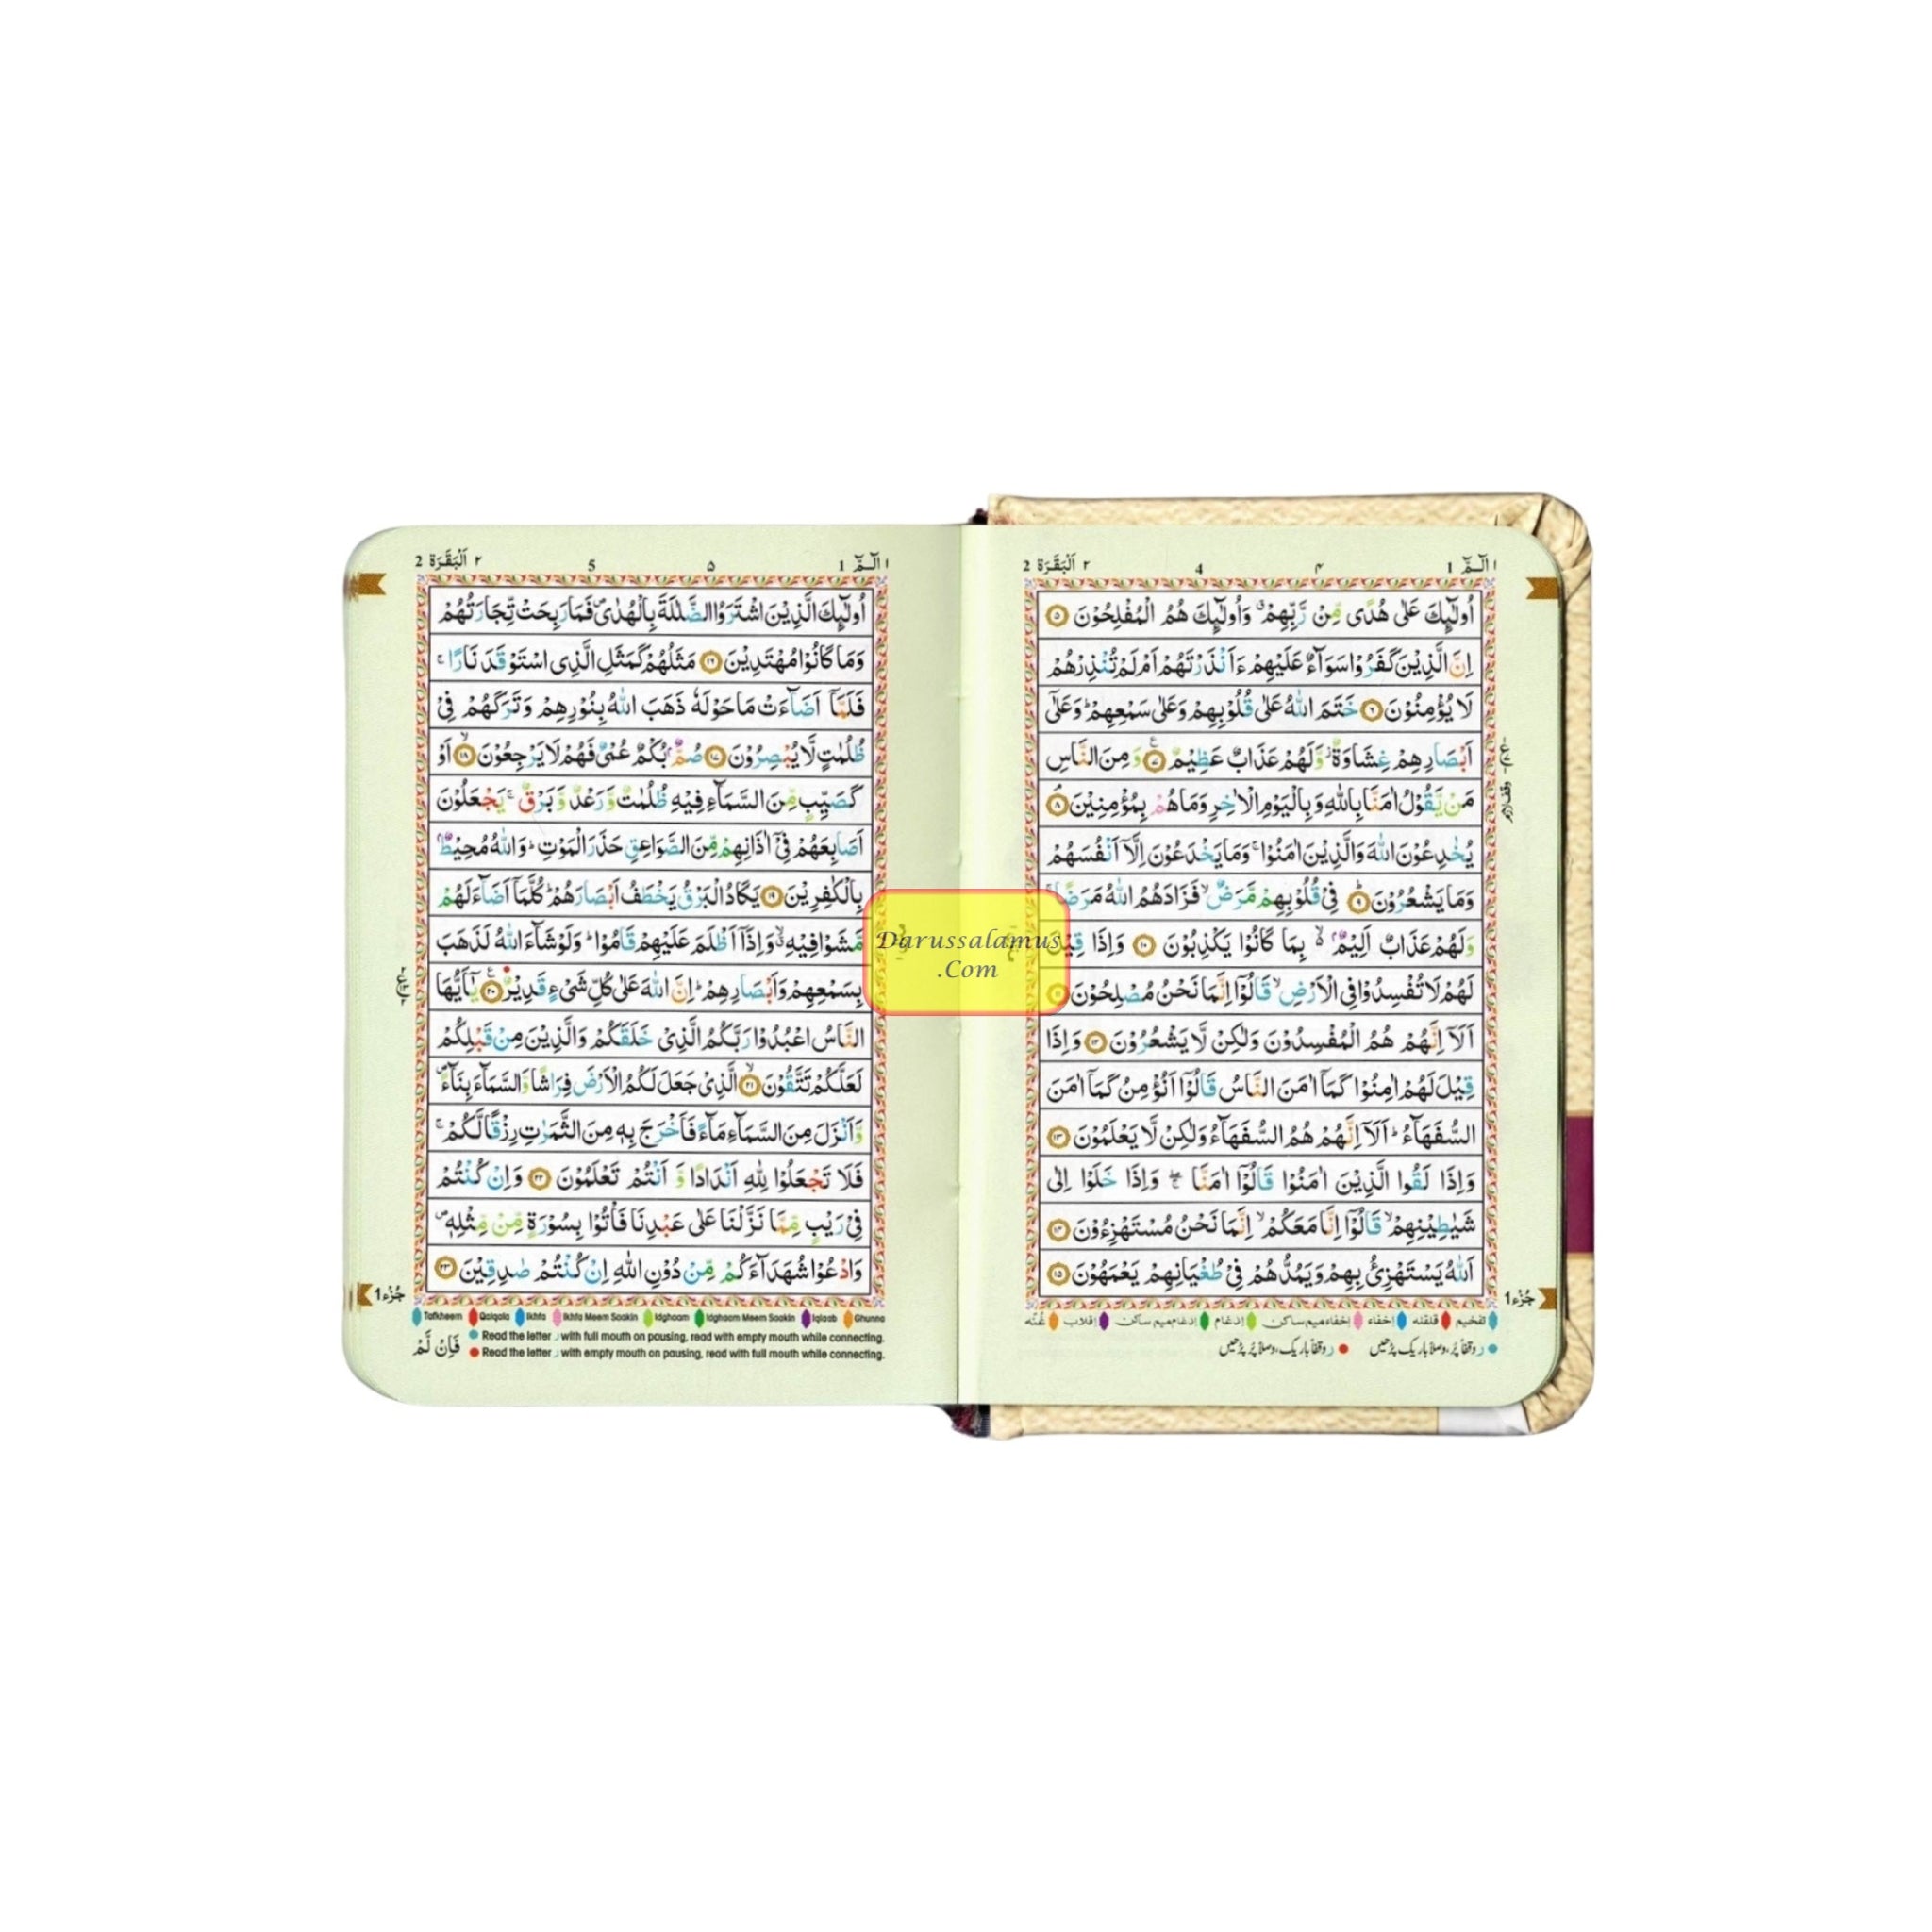 ١ الٓـمّٓ 1
۴
4
٢ اَلْبَقَرَة 2
اُولٰٓئِكَ عَلٰى هُدًى مِّنْ رَّبِّهِمْ ۙ وَاُولٰٓئِكَ هُمُ الْمُفْلِحُوْنَ ۝٥
اِنَّ الَّذِيْنَ كَفَرُوْا سَوَآءٌ عَلَيْهِمْ ءَاَنْذَرْتَهُمْ اَمْ لَمْ تُنْذِرْهُمْ
لَا يُؤْمِنُوْنَ ۝٦ خَتَمَ اللّٰهُ عَلٰى قُلُوْبِهِمْ وَعَلٰى سَمْعِهِمْ ؕ وَعَلٰٓى
اَبْصَارِهِمْ غِشَاوَةٌ ؗ وَّلَهُمْ عَذَابٌ عَظِيْمٌ ۝٧ وَمِنَ النَّاسِ
مَنْ يَّقُوْلُ اٰمَنَّا بِاللّٰهِ وَبِالْيَوْمِ الْاٰخِرِ وَمَا هُمْ بِمُؤْمِنِيْنَ ۝٨
يُخٰدِعُوْنَ اللّٰهَ وَالَّذِيْنَ اٰمَنُوْا ۚ وَمَا يَخْدَعُوْنَ اِلَّاۤ اَنْفُسَهُمْ
وَمَا يَشْعُرُوْنَ ۝٩ فِيْ قُلُوْبِهِمْ مَّرَضٌ ۙ فَزَادَهُمُ اللّٰهُ مَرَضًا ۚ
وَلَهُمْ عَذَابٌ اَلِيْمٌۢ ۙ بِمَا كَانُوْا يَكْذِبُوْنَ ۝١٠ وَاِذَا قِيْلَ
لَهُمْ لَا تُفْسِدُوْا فِى الْاَرْضِ ۙ قَالُوْۤا اِنَّمَا نَحْنُ مُصْلِحُوْنَ ۝١١
اَلَاۤ اِنَّهُمْ هُمُ الْمُفْسِدُوْنَ وَلٰكِنْ لَّا يَشْعُرُوْنَ ۝١٢ وَاِذَا
قِيْلَ لَهُمْ اٰمِنُوْا كَمَاۤ اٰمَنَ النَّاسُ قَالُوْۤا اَنُؤْمِنُ كَمَاۤ اٰمَنَ
السُّفَهَآءُ ؕ اَلَاۤ اِنَّهُمْ هُمُ السُّفَهَآءُ وَلٰكِنْ لَّا يَعْلَمُوْنَ ۝١٣
وَاِذَا لَقُوا الَّذِيْنَ اٰمَنُوْا قَالُوْۤا اٰمَنَّا ۖۚ وَاِذَا خَلَوْا اِلٰى
شَيٰطِيْنِهِمْ ۙ قَالُوْۤا اِنَّا مَعَكُمْ ۙ اِنَّمَا نَحْنُ مُسْتَهْزِءُوْنَ ۝١٤
اَللّٰهُ يَسْتَهْزِئُ بِهِمْ وَيَمُدُّهُمْ فِيْ طُغْيَانِهِمْ يَعْمَهُوْنَ ۝١٥
جُزْء 1
تفخیم قلقله إخفاء إخفاءمیم‌ساکن إدغام إدغام‌میم ساکن إقلاب غُنَّه
ر وقفاً پُر، وصلاً باریک پڑھیں ر وقفاً باریک، وصلاً پُر پڑھیں
١ الٓـمّٓ 1
۵
5
٢ اَلْبَقَرَة 2
اُولٰٓئِكَ الَّذِيْنَ اشْتَرَوُا الضَّلٰلَةَ بِالْهُدٰى ۪ فَمَا رَبِحَتْ تِّجَارَتُهُمْ
وَمَا كَانُوْا مُهْتَدِيْنَ ۝١٦ مَثَلُهُمْ كَمَثَلِ الَّذِى اسْتَوْقَدَ نَارًا ۚ
فَلَمَّاۤ اَضَآءَتْ مَا حَوْلَهٗ ذَهَبَ اللّٰهُ بِنُوْرِهِمْ وَتَرَكَهُمْ فِيْ
ظُلُمٰتٍ لَّا يُبْصِرُوْنَ ۝١٧ صُمٌّۢ بُكْمٌ عُمْيٌ فَهُمْ لَا يَرْجِعُوْنَ ۝١٨ اَوْ
كَصَيِّبٍ مِّنَ السَّمَآءِ فِيْهِ ظُلُمٰتٌ وَّرَعْدٌ وَّبَرْقٌ ۚ يَجْعَلُوْنَ
اَصَابِعَهُمْ فِيْۤ اٰذَانِهِمْ مِّنَ الصَّوَاعِقِ حَذَرَ الْمَوْتِ ؕ وَاللّٰهُ مُحِيْطٌۢ
بِالْكٰفِرِيْنَ ۝١٩ يَكَادُ الْبَرْقُ يَخْطَفُ اَبْصَارَهُمْ ؕ كُلَّمَاۤ اَضَآءَ لَهُمْ
مَّشَوْا فِيْهِ ۙ وَاِذَاۤ اَظْلَمَ عَلَيْهِمْ قَامُوْا ؕ وَلَوْ شَآءَ اللّٰهُ لَذَهَبَ
بِسَمْعِهِمْ وَاَبْصَارِهِمْ ؕ اِنَّ اللّٰهَ عَلٰى كُلِّ شَيْءٍ قَدِيْرٌ ۝٢٠ يٰۤاَيُّهَا
النَّاسُ اعْبُدُوْا رَبَّكُمُ الَّذِيْ خَلَقَكُمْ وَالَّذِيْنَ مِنْ قَبْلِكُمْ
لَعَلَّكُمْ تَتَّقُوْنَ ۝٢١ الَّذِيْ جَعَلَ لَكُمُ الْاَرْضَ فِرَاشًا وَّالسَّمَآءَ بِنَآءً ۪
وَّاَنْزَلَ مِنَ السَّمَآءِ مَآءً فَاَخْرَجَ بِهٖ مِنَ الثَّمَرٰتِ رِزْقًا لَّكُمْ ۚ
فَلَا تَجْعَلُوْا لِلّٰهِ اَنْدَادًا وَّ اَنْتُمْ تَعْلَمُوْنَ ۝٢٢ وَاِنْ كُنْتُمْ
فِيْ رَيْبٍ مِّمَّا نَزَّلْنَا عَلٰى عَبْدِنَا فَاْتُوْا بِسُوْرَةٍ مِّنْ مِّثْلِهٖ ۪
وَادْعُوْا شُهَدَآءَكُمْ مِّنْ دُوْنِ اللّٰهِ اِنْ كُنْتُمْ صٰدِقِيْنَ ۝٢٣
جُزْء 1
Tafkheem Qalqala Ikhfa Ikhfa Meem Saakin Idghaam Idghaam Meem Saakin Iqlaab Ghunna
Read the letter ر with full mouth on pausing, read with empty mouth while connecting.
Read the letter ر with empty mouth on pausing, read with full mouth while connecting.
فَاِنْ لَّمْ
Darussalamus
.Com